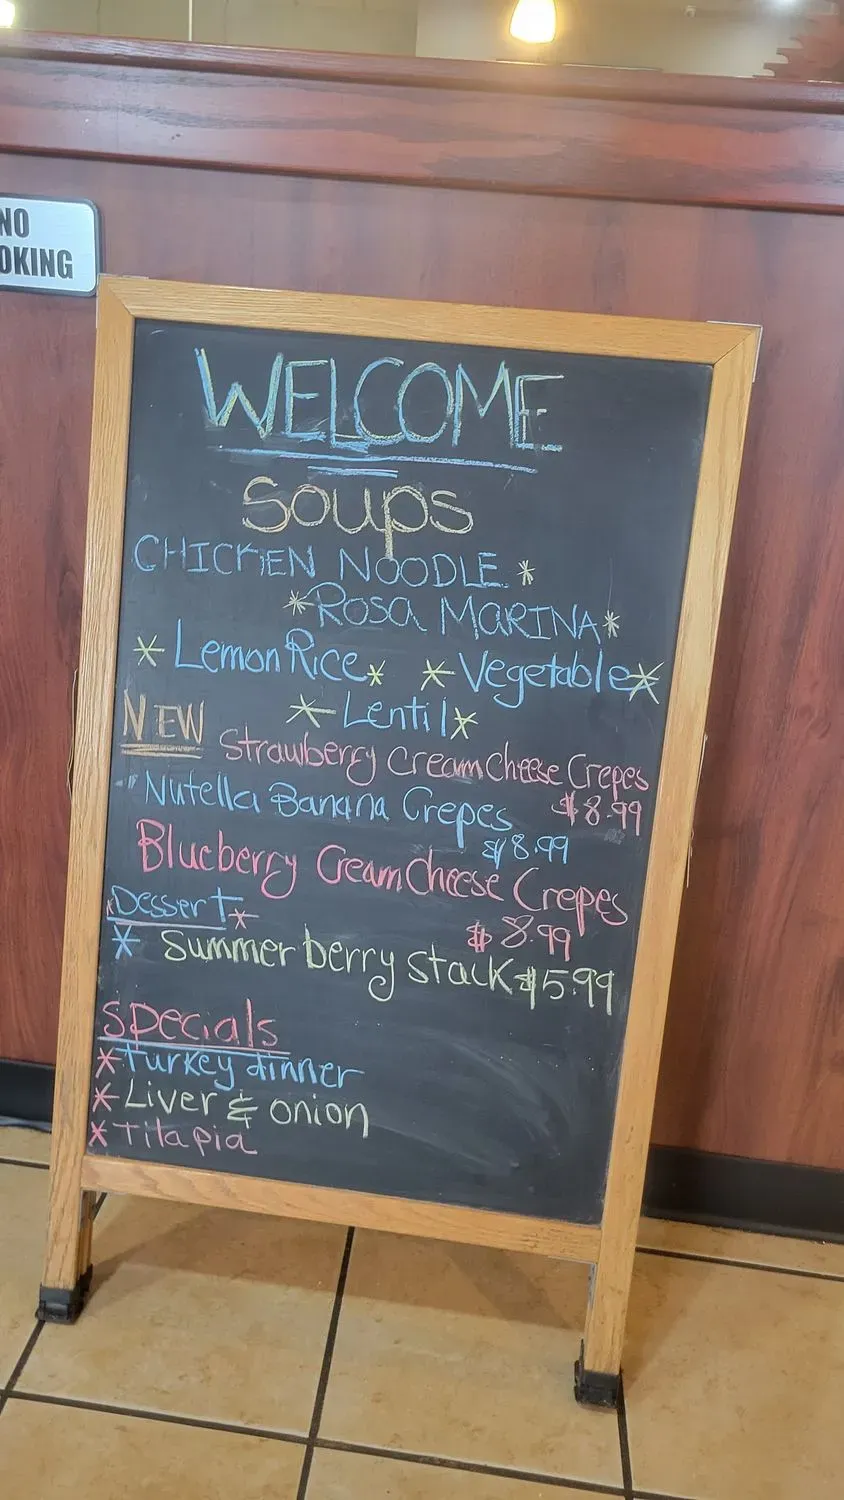 NO
OKING
WELCOME
Soups
CHICKEN NOODLE *
*ROSA MARINA*
* Lemon Rice * * Vegetable *
* Lentil *
NEW Strawberry Cream Cheese Crepes
$8.99
Nutella Banana Crepes
$8.99
Blueberry Cream Cheese Crepes
$8.99
Dessert *
* Summer berry stack $5.99
specials
* Turkey dinner
* Liver & onion
* Tilapia